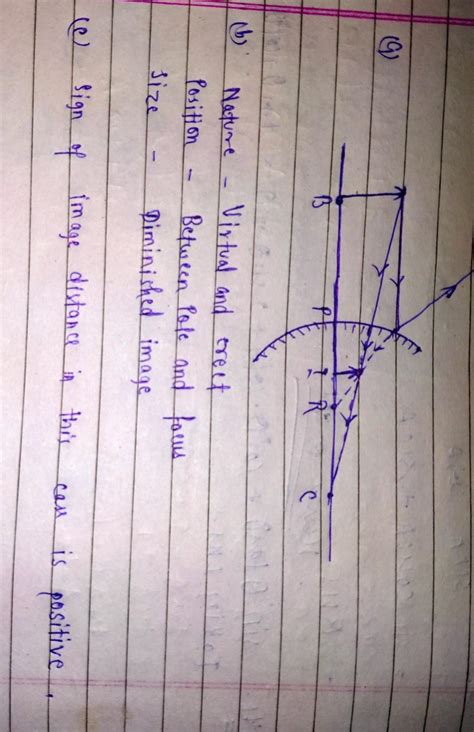 (a)
B P I R C
(b) Nature - Virtual and erect
Position - Between Pole and focus
Size - Diminished image
(c) Sign of image distance in this case is positive.